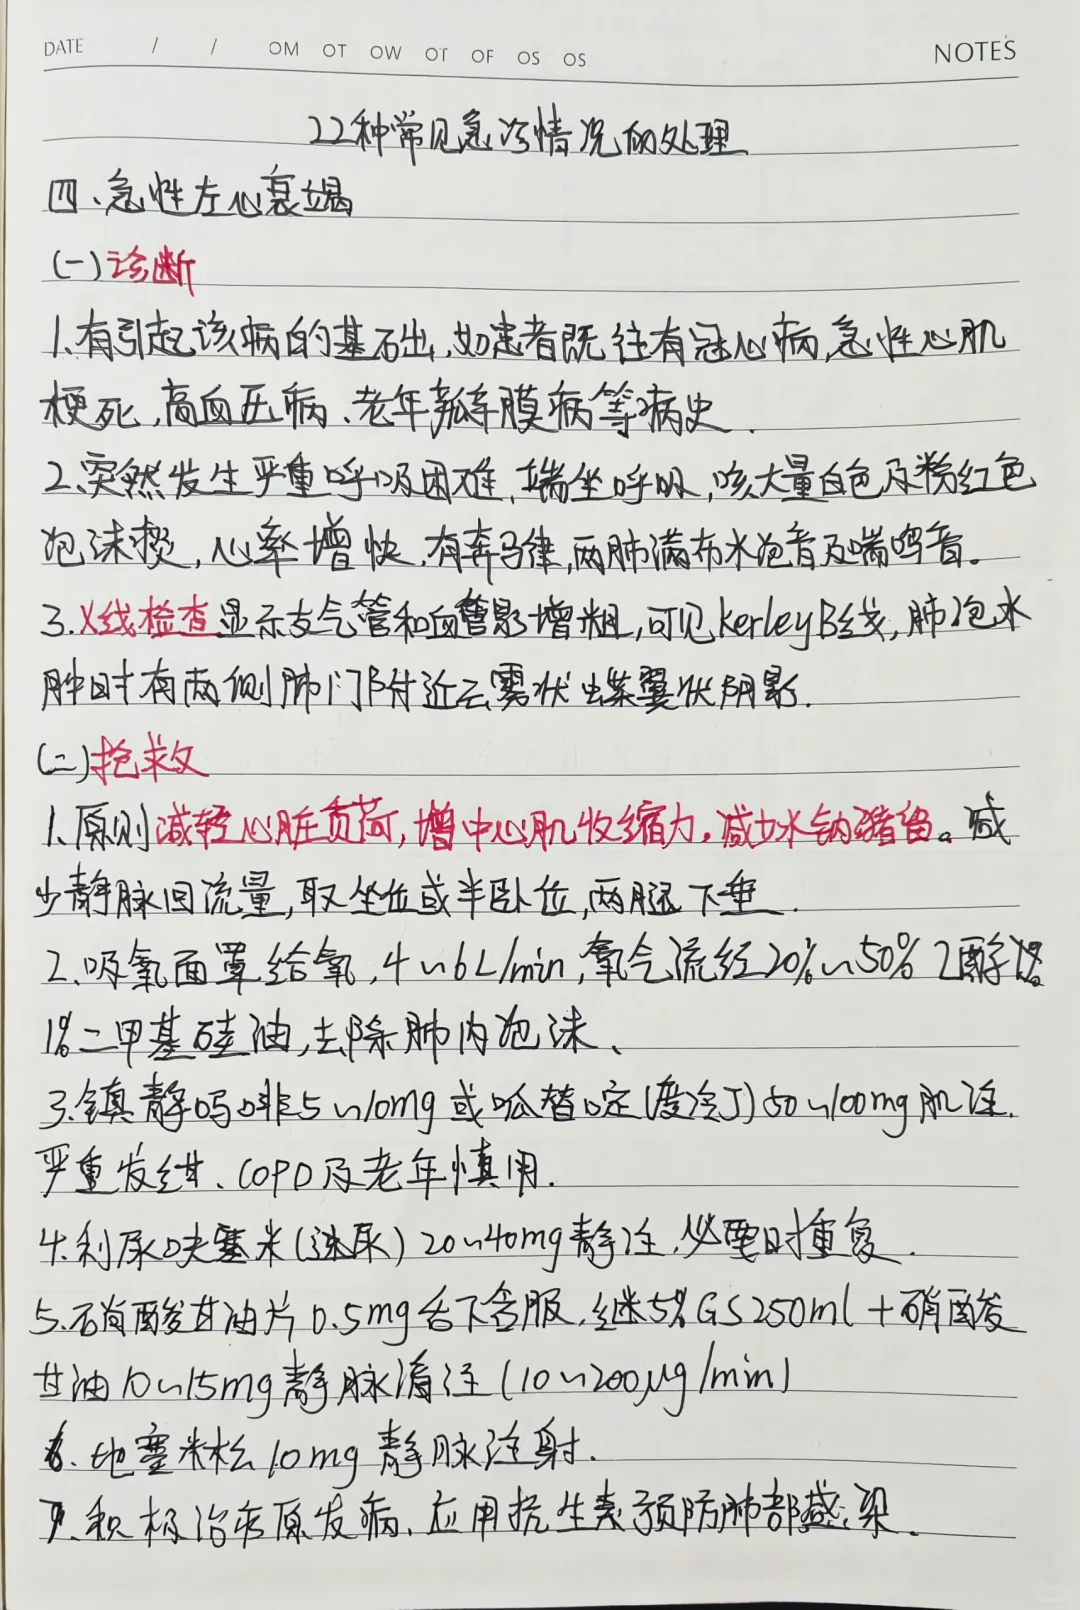 DATE / / OM OT OW OT OF OS OS NOTES
22种常见急诊情况的处理
四、急性左心衰竭
(一)诊断
1.有引起该病的基础,如患者既往有冠心病,急性心肌
梗死,高血压病、老年瓣膜病等病史.
2.突然发生严重呼吸困难,端坐呼吸,咳大量白色及粉红色
泡沫痰,心率增快,有奔马律,两肺满布水泡音及喘鸣音。
3.X线检查显示支气管和血管影增粗,可见KerleyB线,肺泡水
肿时有两侧肺门附近云雾状蝶翼状阴影.
(二)抢救
1.原则减轻心脏负荷,增中心肌收缩力,减少水钠潴留。减
少静脉回流量,取坐位或半卧位,两腿下垂.
2.吸氧面罩给氧,4~6L/min,氧气流经20%~50%乙醇
1%二甲基硅油,去除肺内泡沫、
3.镇静吗啡5~10mg或哌替啶(度冷丁)50~100mg肌注.
严重发绀、COPD及老年慎用.
4.利尿呋塞米(速尿)20~40mg静注,必要时重复.
5.硝酸甘油片0.5mg舌下含服,继5%GS250ml+硝酸
甘油10~15mg静脉滴注(10~200μg/min)
6.地塞米松10mg静脉注射.
7.积极治疗原发病、应用抗生素预防肺部感染.